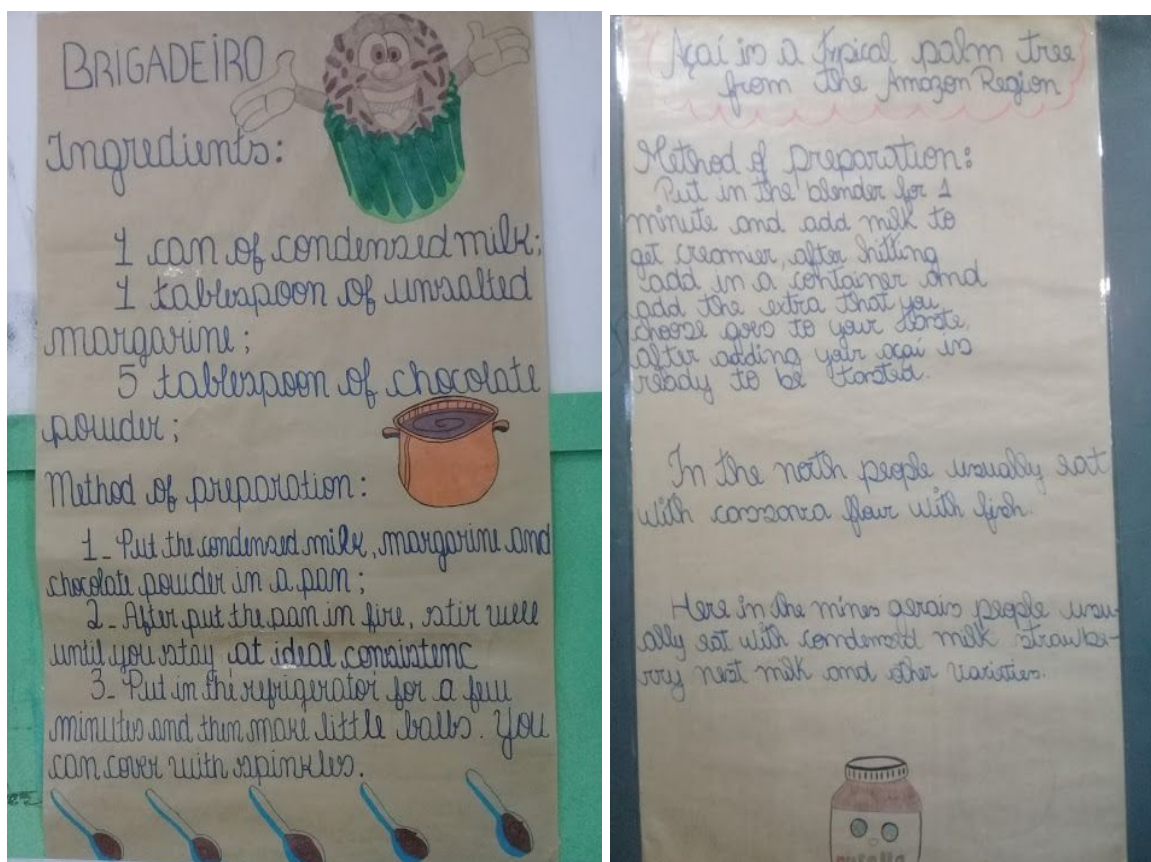 BRIGADEIRO
Ingredients:
1 can of condensed milk;
1 tablespoon of unsalted
margarine;
5 tablespoon of chocolate
powder;
Method of preparation:
1- Put the condensed milk, margarine and
chocolate powder in a pan;
2- After put the pan in fire, stir well
until you stay at ideal consistenc
3- Put in the refrigerator for a few
minutes and then make little balls. You
can cover with spinkles.
Açaí is a typical palm tree
from the Amazon Region
Method of preparation:
Put in the blender for 1
minute and add milk to
get creamier, after hitting
add in a container and
add the extra that you
choose goes to your taste,
after adding your açaí is
ready to be tasted.
In the north people usually eat
with flour with fish.
Here in the mines gerais people usu-
ally eat with condensed milk strawbe-
rry nest milk and other varieties.
nutella